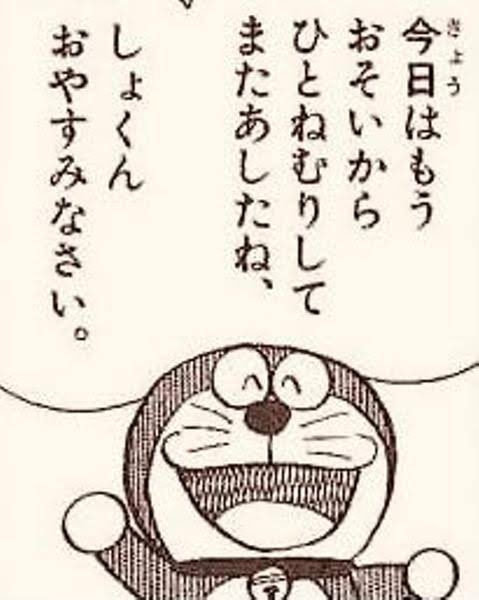 今日はもう
おそいから
ひとねむりして
またあしたね、
しょくん
おやすみなさい。